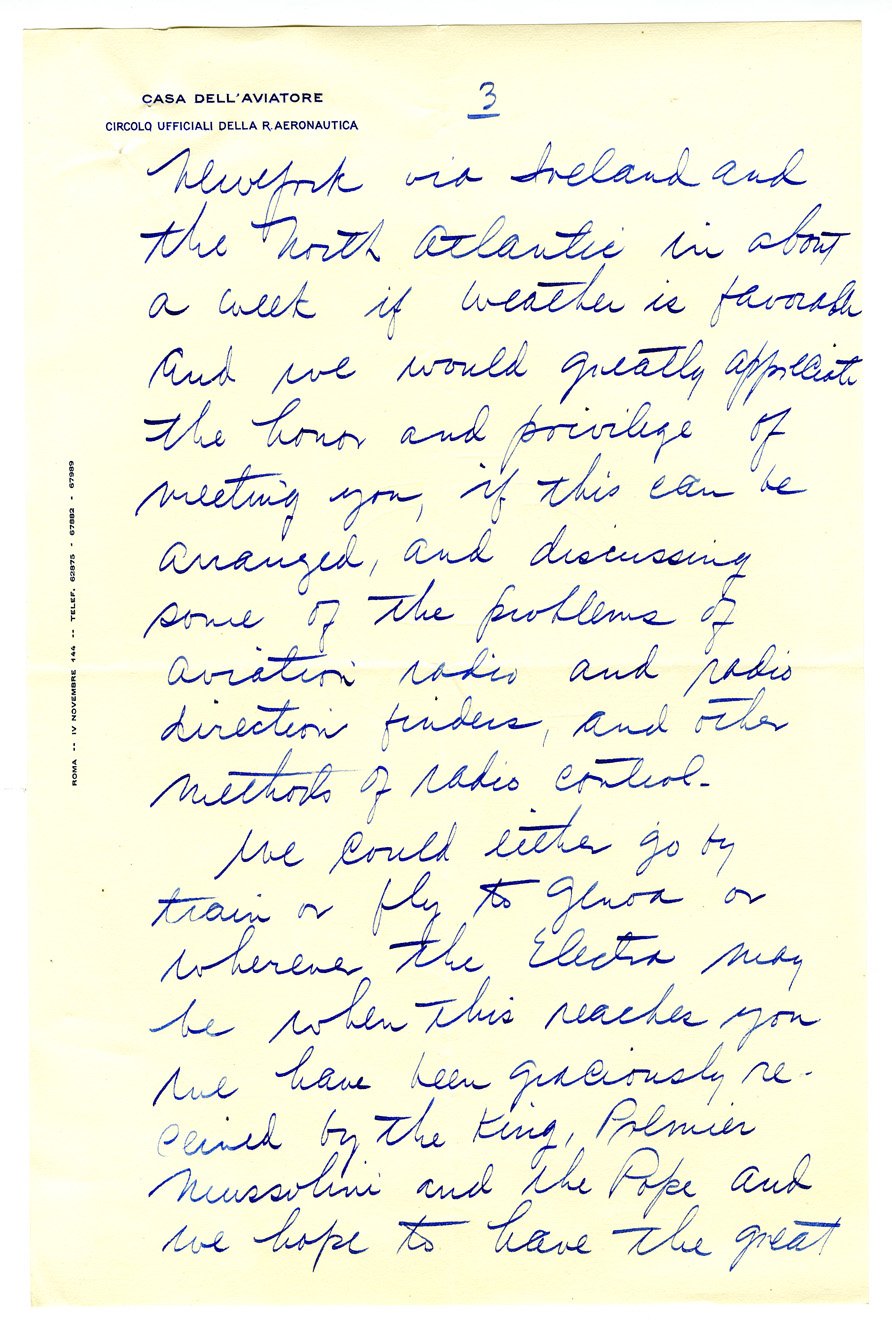 CASA DELL'AVIATORE
CIRCOLO UFFICIALI DELLA R. AERONAUTICA
3
New York via Ireland and
the North Atlantic in about
a week if weather is favorable
and we would greatly appreciate
the honor and privilege of
meeting you, if this can be
arranged, and discussing
some of the problems of
aviation radio and radio
direction finders, and other
methods of radio control-
We could either go by
train or fly to Genoa or
wherever the Electra may
be when this reaches you
We have been graciously re-
ceived by the King, Premier
Mussolini and the Pope and
we hope to have the great
ROMA -- IV NOVEMBRE 144 -- TELEF. 62875 - 67882 - 67989